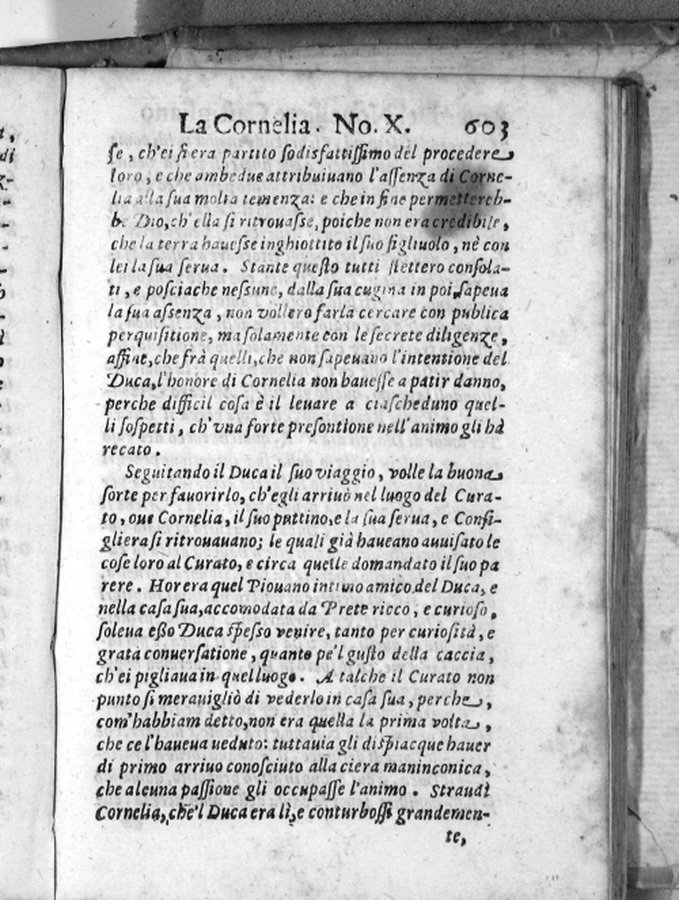 La Cornelia. No. X. 603
ſe, ch'ei ſi era partito ſodisfattiſſimo del procedere
loro, e che ambedue attribuiuano l'aſſenza di Corne-
lia alla ſua molta temenza: e che in fine permettereb-
be Dio, ch'ella ſi ritrouaſſe, poiche non era credibile,
che la terra haueſſe inghiottito il ſuo figliuolo, nè con
lei la ſua ſerua. Stante queſto tutti ſtettero conſola-
ti, e poſciache neſſuno, dalla ſua cugina in poi, ſapeua
la ſua aſſenza, non vollero farla cercare con publica
perquiſitione, ma ſolamente con le ſecrete diligenze,
affine, che frà quelli, che non ſapeuano l'intentione del
Duca, l'honore di Cornelia non haueſſe a patir danno,
perche difficil coſa è il leuare a ciaſcheduno quel-
li ſoſpetti, ch'vna forte preſontione nell'animo gli hà
recato.
Seguitando il Duca il ſuo viaggio, volle la buona
ſorte per fauorirlo, ch'egli arriuò nel luogo del Cura-
to, oue Cornelia, il ſuo puttino, e la ſua ſerua, e Conſi-
gliera ſi ritrouauano; le quali già haueano auuiſato le
coſe loro al Curato, e circa quelle domandato il ſuo pa
rere. Hor era quel Piouano intimo amico del Duca, e
nella caſa ſua, accomodata da Prete ricco, e curioſo,
ſoleua eßo Duca ſpeſſo venire, tanto per curioſità, e
grata conuerſatione, quanto pe'l guſto della caccia,
ch'ei pigliaua in quel luogo. A talche il Curato non
punto ſi merauigliò di vederlo in caſa ſua, perche,
com'habbiam detto, non era quella la prima volta,
che ce l'haueua ueduto: tuttauia gli diſpiacque hauer
di primo arriuo conoſciuto alla ciera maninconica,
che alcuna paſſione gli occupaſſe l'animo. Straudì
Cornelia, che'l Duca era lì, e conturboſſi grandemen-
te,